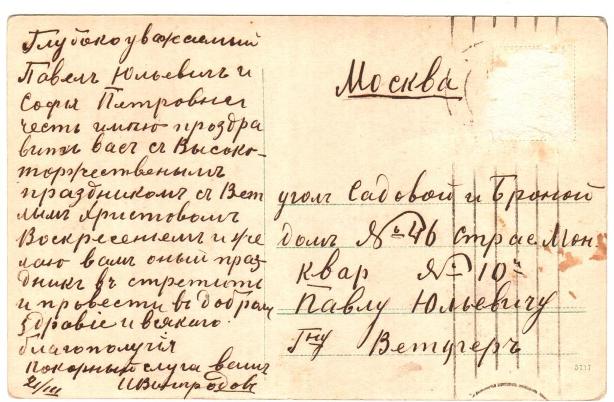 Глубокоуважаемый
Павелъ Юльевичъ и
Софья Петровна
честь имѣю проздра
вить васъ съ Высоко-
торжественымъ
праздникомъ съ Вет
лымъ Христовомъ
Воскресеніемъ и же
лаю вамъ оный праз-
дникъ въ стретить
и провести въ добром
здравіе и всякаго
благополучія
Покорный слуга вашъ
21/III
Москва
уголъ Садовой и Броной
домъ № 46
квар № 10
Павлу Юльевичу
Гну Ветцеръ
5717